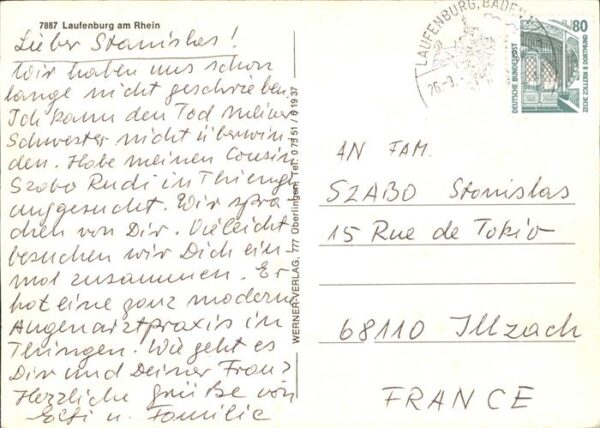 7887 Laufenburg am Rhein
Lieber Stanislas!
Wir haben uns schon
lange nicht geschrieben
Ich kann den Tod meiner
Schwester nicht überwin
den. Habe meinen Cousin
Szabo Rudi in Thiengen
aufgesucht. Wir spra
chen von Dir. Vielleicht
besuchen wir Dich ein
mal zusammen. Er
hat eine ganz moderne
Augenarztpraxis in
Thiengen. Wie geht es
Dir und Deiner Frau?
Herzliche Grüße von
u. Familie
WERNER-VERLAG, 777 Überlingen Tel. 0 75 51 / 6 19 37
LAUFENBURG, BADEN
26-9.
80
DEUTSCHE BUNDESPOST
ZECHE ZOLLERN II DORTMUND
AN FAM.
SZABO Stanislas
15 Rue de Tokio
68110 Illzach
FRANCE